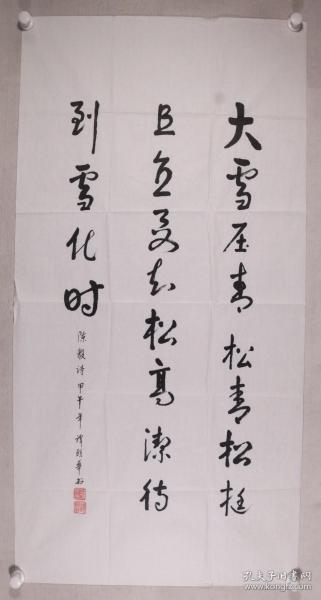 大雪压青松青松挺
且直要知松高潔待
到雪化时
陳毅诗 甲午年
孔夫子旧书网